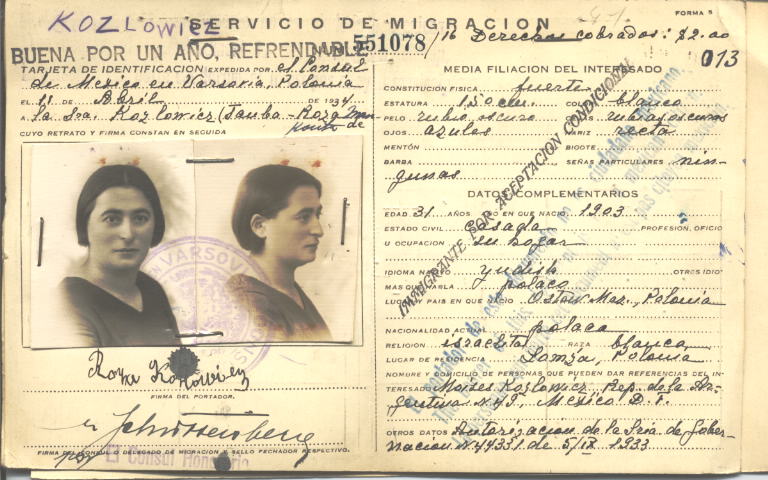 KOZLOWICZ
SERVICIO DE MIGRACION
FORMA 5
BUENA POR UN AÑO, REFRENDABLE
NUM 551078 /16 Derechos cobrados: $2.00
013
TARJETA DE IDENTIFICACION EXPEDIDA POR el Consul
de Mexico en Varsovia, Polonia
EL 11 DE Abril DE 1934
A la Sra. Kozlowicz
CUYO RETRATO Y FIRMA CONSTAN EN SEGUIDA
VARSOV
FIRMA DEL PORTADOR.
FIRMA DEL CONSUL O DELEGADO DE MIGRACION Y SELLO FECHADOR RESPECTIVO.
por El Consul Honorario
MEDIA FILIACION DEL INTERESADO
CONSTITUCION FISICA fuerte
ESTATURA 150 cm. COLOR blanco
PELO rubio oscuro CEJAS rubias oscuros
OJOS azules NARIZ recta
MENTÓN BIGOTE
BARBA SEÑAS PARTICULARES nin-
gunas
DATOS COMPLEMENTARIOS
EDAD 31 AÑOS AÑO EN QUE NACIO 1903
ESTADO CIVIL casada PROFESION, OFICIO
U OCUPACION su hogar
IDIOMA NATIVO yudish OTROS IDIO-
MAS QUE HABLA polaco
LUGAR Y PAIS EN QUE NACIO Ostow Maz., Polonia
NACIONALIDAD ACTUAL polaca
RELIGION israelita RAZA blanca
LUGAR DE RESIDENCIA Lomza, Polonia
NOMBRE Y DOMICILIO DE PERSONAS QUE PUEDEN DAR REFERENCIAS DEL IN-
TERESADO Moises Kozlowicz, Rep. de la Ar-
gentina N. 49, Mexico D. F.
OTROS DATOS Autorizacion de la Sria. de Gober-
nacion N. 44331 de 5/IX 1933
INMIGRANTE POR ACEPTACION CONDICIONAL